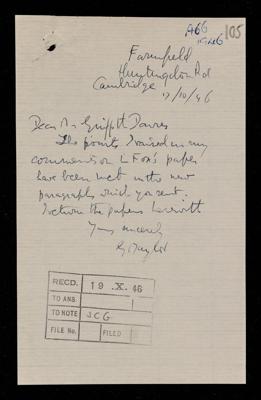 1966
1946
105
Farmfield
Huntingdon Rd
Cambridge
17/10/46
Dear Mr Griffith Davies
The points I raised in my
comments on L Fox's paper
have been met in the new
paragraphs which you sent.
I return the papers herewith
Yours sincerely
G I Taylor
RECD. 19 .X. 46
TO ANS.
TO NOTE JCG
FILE No. FILED